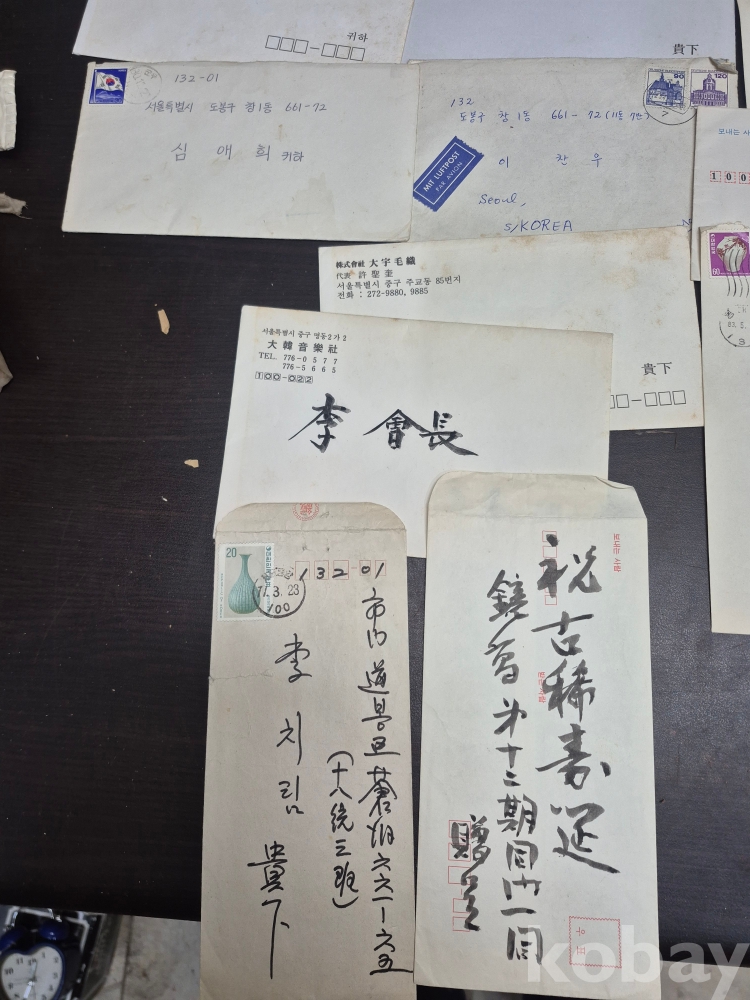 귀하
貴下
132-01
서울특별시 도봉구 창1동 661-72
심애희 귀하
90
120
132
도봉구 창1동 661-72 (11통 7반)
MIT LUFTPOST
PAR AVION
이찬우
Seoul,
S/KOREA
보내는 사
100
60
株式會社 大宇毛織
代表 許聖奎
서울특별시 중구 주교동 85번지
전화 : 272-9880, 9885
貴下
서울특별시 중구 명동2가 2
大韓音樂社
TEL. 776-0577
776-5665
100-022
李會長
20
77.3.23
100
132-01
市內 道봉區 蒼洞 六六一-六五
(十八統三班)
李치림
貴下
祝古稀壽筵
鏡高 第十二期同門一同
贈呈
우표
kobay